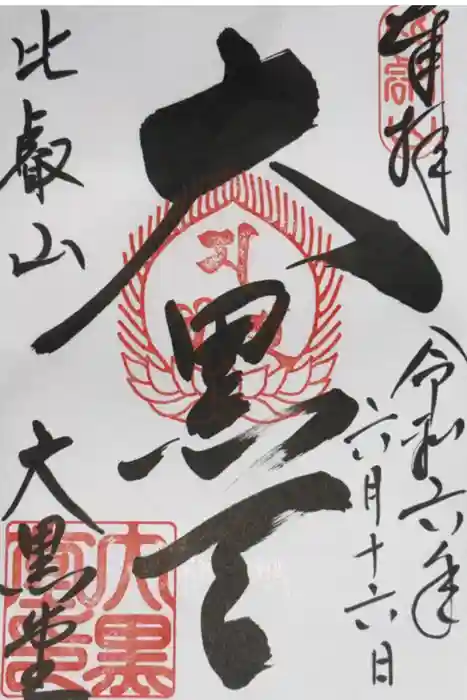 奉拝
令和六年
六月十六日
大黒天
比叡山
大黒堂
大黒
堂印